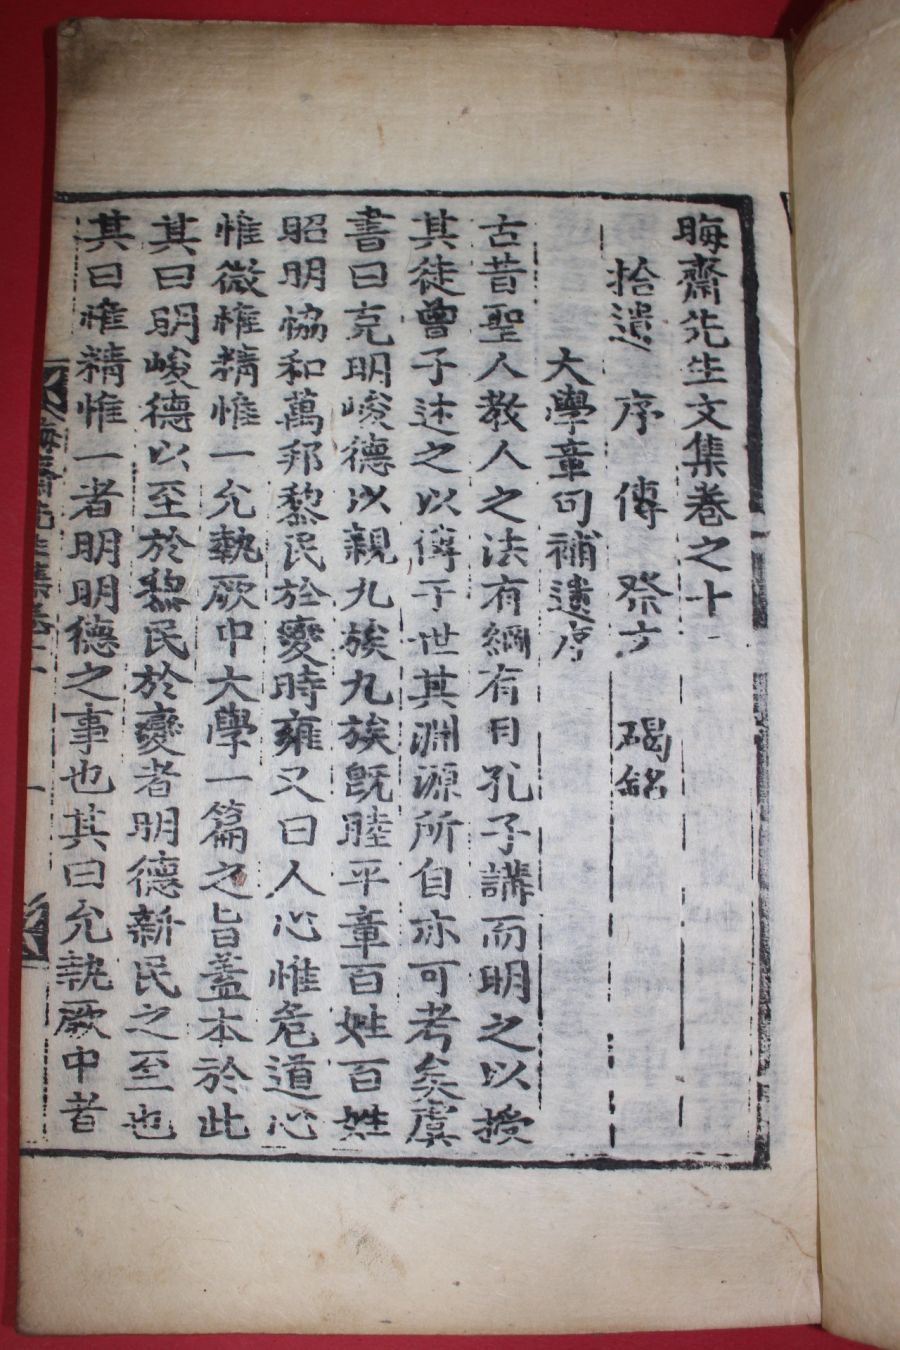 晦齋先生文集卷之十一
拾遺 序 傳 祭文 碣銘
大學章句補遺序
古昔聖人教人之法有綱有目孔子講而明之以授
其徒曾子述之以傳于世其淵源所自亦可考矣虞
書曰克明峻德以親九族九族旣睦平章百姓百姓
昭明恊和萬邦黎民於變時雍又曰人心惟危道心
惟微惟精惟一允執厥中大學一篇之旨盖本於此
其曰明峻德以至於黎民於變者明德新民之至也
其曰惟精惟一者明明德之事也其曰允執厥中者
晦齋先生集卷十一
一